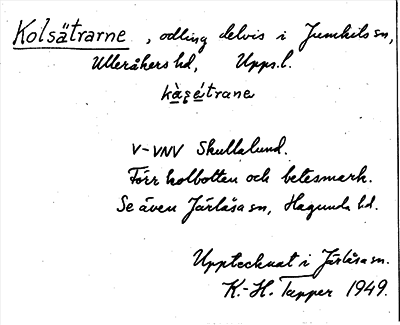 Kolsätrarne, odling delvis i Jumkils sn,
Ulleråkers hd, Upps. l.
kàsétrane
V-VNV Skullalund.
Förr kolbotten och betesmark.
Se även Järlåsa sn, Hagunda hd.
Upptecknat i Järlåsa sn.
K.-H. Tapper 1949.